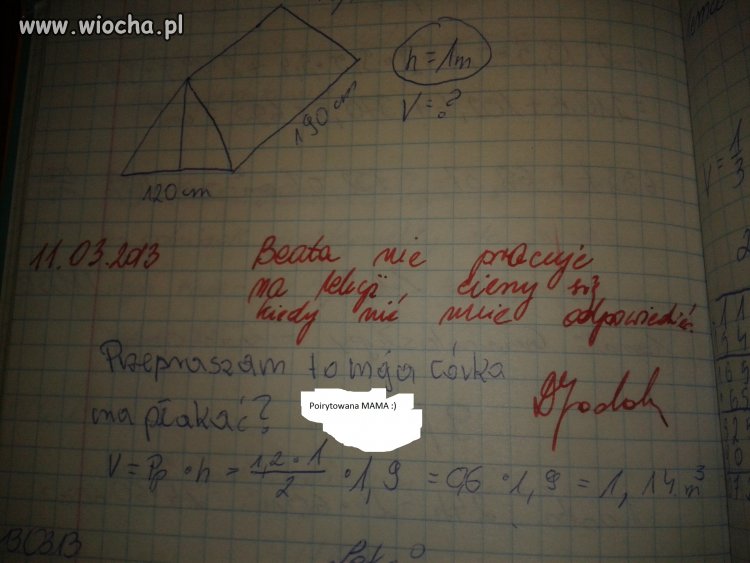 www.wiocha.pl
h = 1m
V = ?
190 cm
120 cm
11.03.2013
Beata nie pracuje
na lekcji, cieszy się
kiedy nie umie odpowiedzieć.
Przepraszam to moja córka
ma płakać?
Poirytowana MAMA :)
V = Pp · h = 1,2 · 1 / 2 · 1,9 = 0,6 · 1,9 = 1,14 m³
13.03.13
V = 1/3